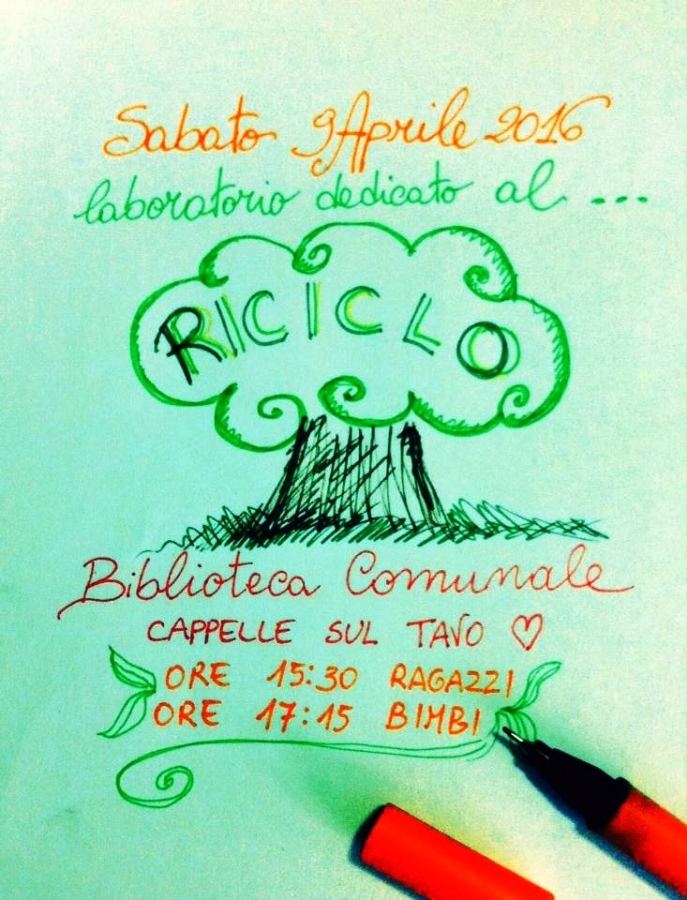 Sabato 9 Aprile 2016
laboratorio dedicato al ...
RICICLO
Biblioteca Comunale
CAPPELLE SUL TAVO ♡
ORE 15:30 RAGAZZI
ORE 17:15 BIMBI